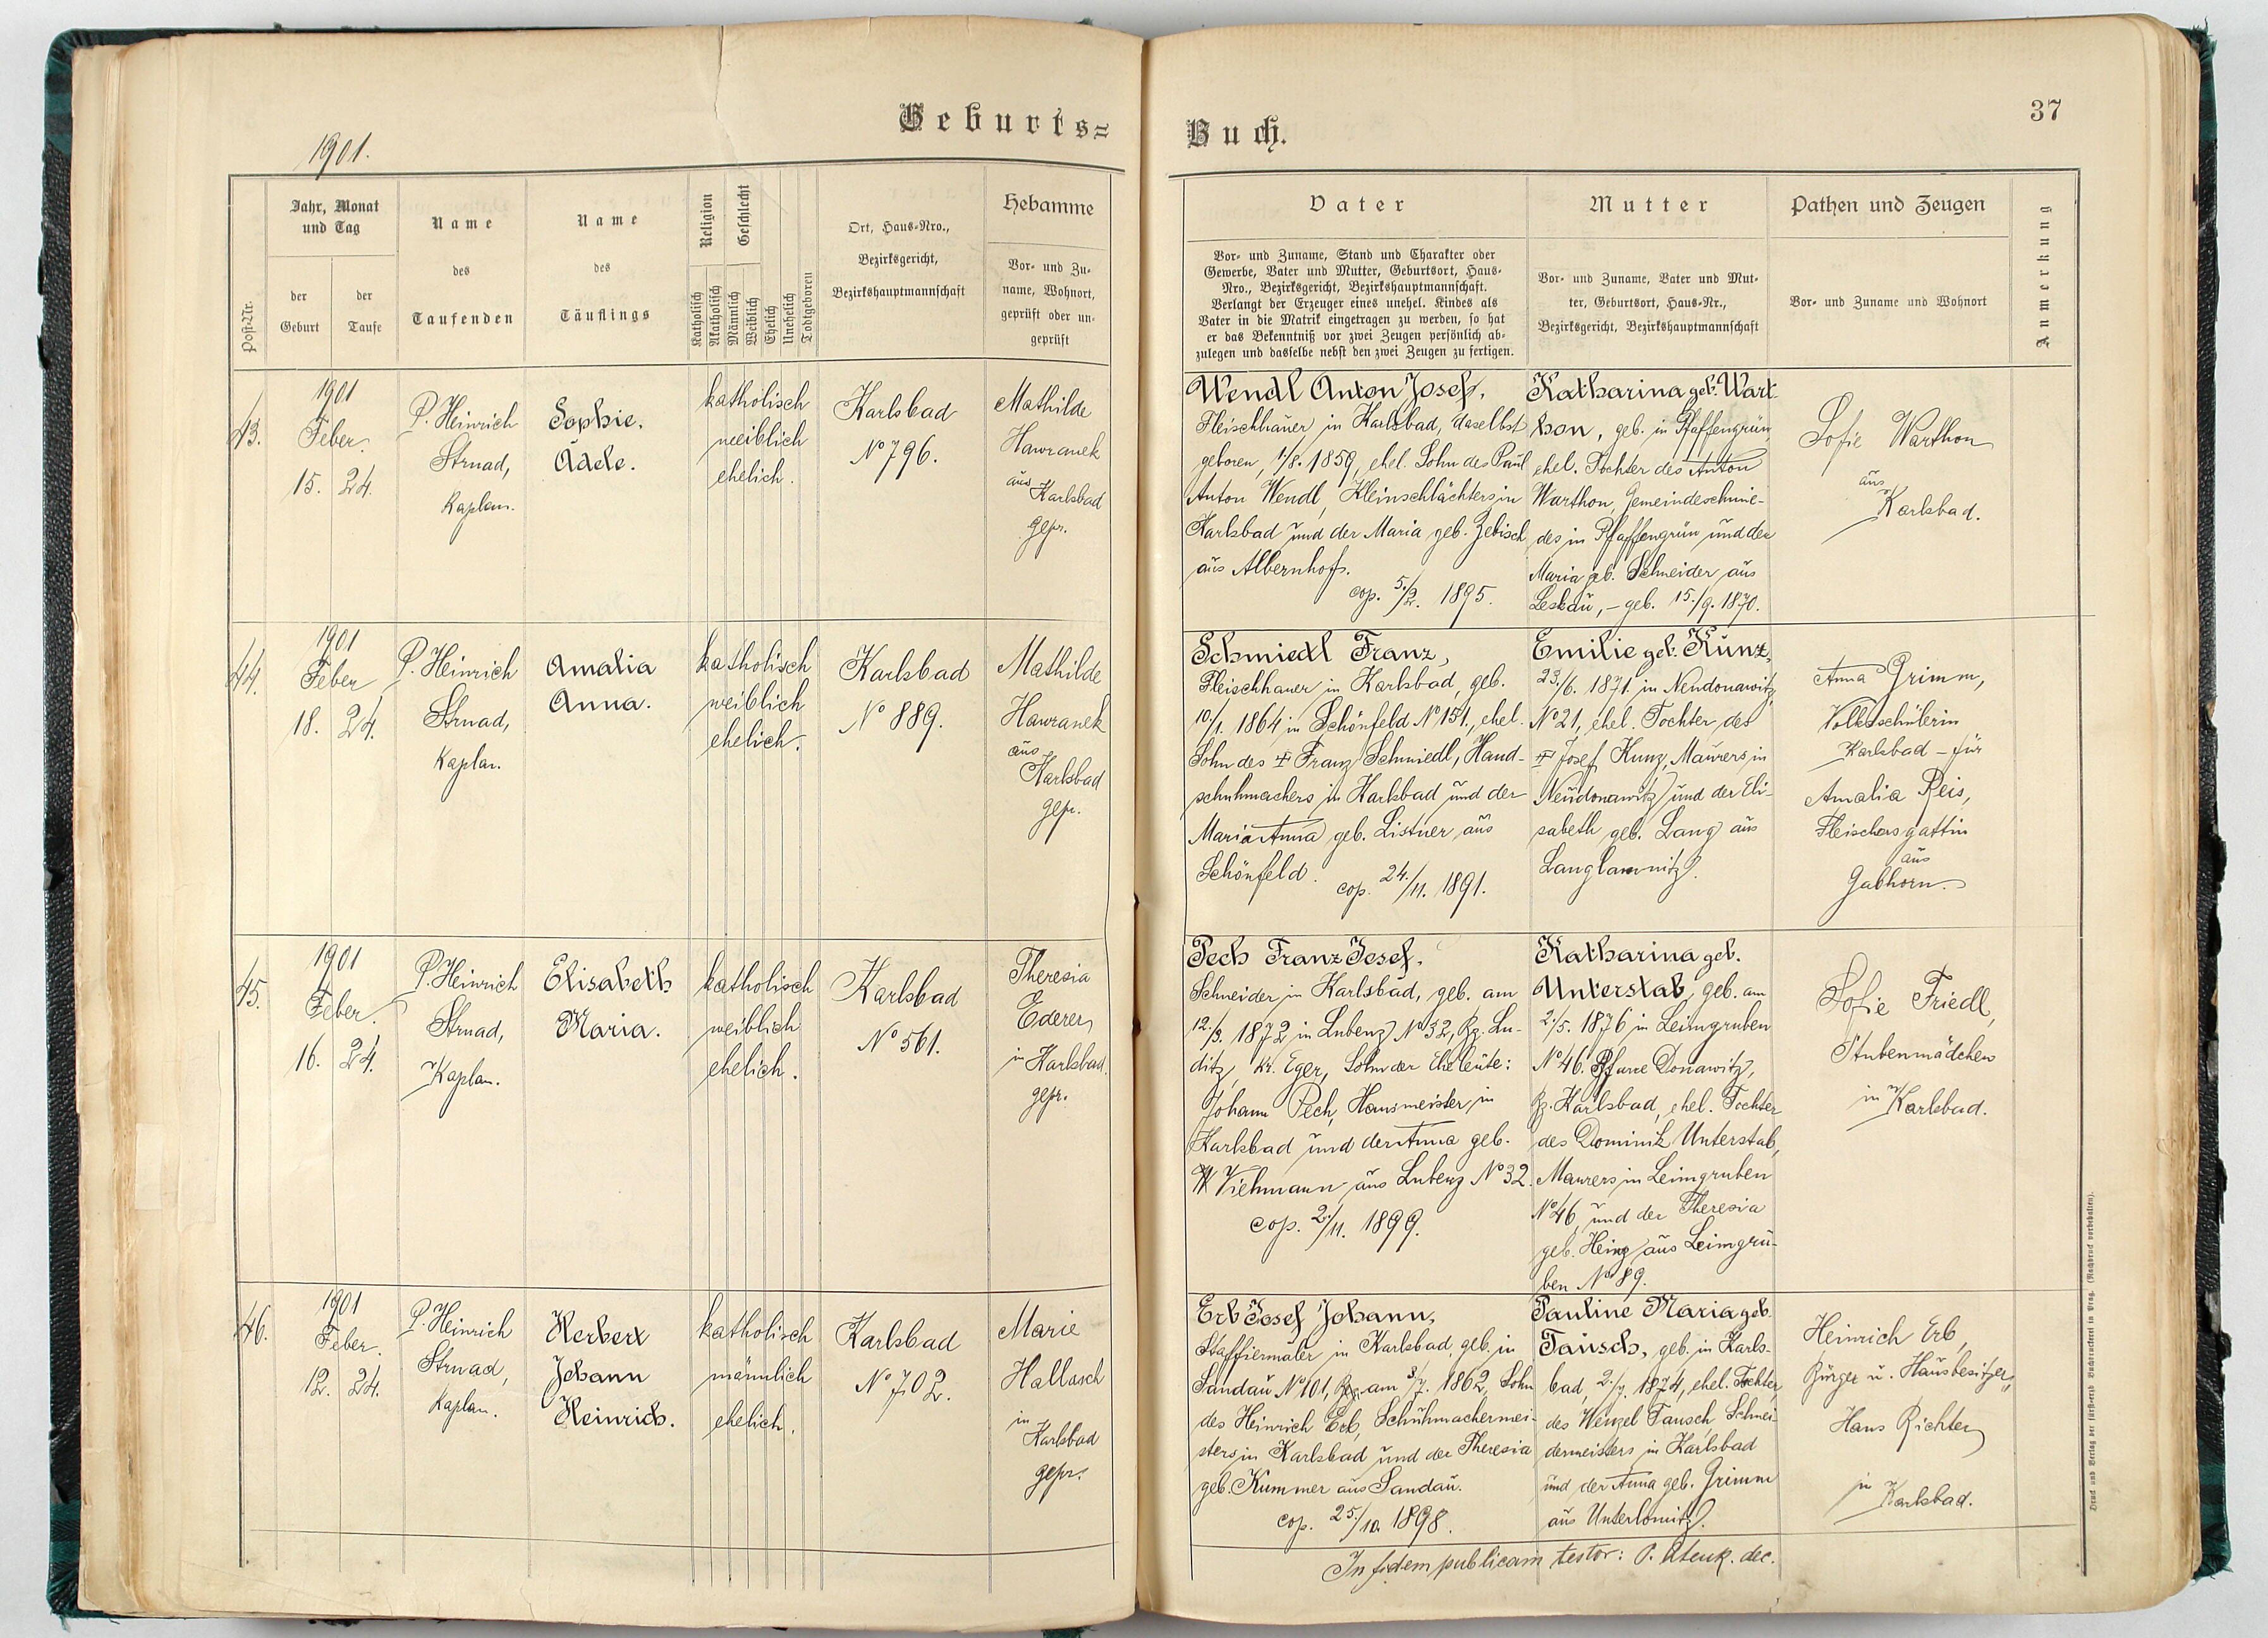 1901.
Geburts=
Post-Nr.
Jahr, Monat
und Tag
der
Geburt
der
Taufe
Name
des
Taufenden
Name
des
Täuflings
Religion
Katholisch
Akatholisch
Geschlecht
Männlich
Weiblich
Ehelich
Unehelich
Todtgeboren
Ort, Haus-Nro.,
Bezirksgericht,
Bezirkshauptmannschaft
Hebamme
Vor- und Zu-
name, Wohnort,
geprüft oder un-
geprüft
43.
1901
Feber.
15. 24.
P. Heinrich
Strnad,
Kaplan.
Sophie.
Adele.
katholisch
weiblich
ehelich.
Karlsbad
No 796.
Mathilde
Hawranek
aus
Karlsbad
gepr.
44.
1901
Feber
18. 24.
P. Heinrich
Strnad,
Kaplan.
Amalia
Anna.
katholisch
weiblich
ehelich.
Karlsbad
No 889.
Mathilde
Hawranek
aus
Karlsbad
gepr.
45.
1901
Feber.
16. 24.
P. Heinrich
Strnad,
Kaplan.
Elisabeth
Maria.
katholisch
weiblich
ehelich.
Karlsbad
No 561.
Theresia
Ederer
in Karlsbad.
gepr.
46.
1901
Feber.
12. 24.
P. Heinrich
Strnad,
Kaplan.
Herbert
Johann
Heinrich.
katholisch
männlich
ehelich.
Karlsbad
No 702.
Marie
Hallasch
in
Karlsbad
gepr.
Buch.
37
Vater
Vor- und Zuname, Stand und Charakter oder
Gewerbe, Vater und Mutter, Geburtsort, Haus-
Nro., Bezirksgericht, Bezirkshauptmannschaft.
Verlangt der Erzeuger eines unehel. Kindes als
Vater in die Matrik eingetragen zu werden, so hat
er das Bekenntniß vor zwei Zeugen persönlich ab-
zulegen und dasselbe nebst den zwei Zeugen zu fertigen.
Mutter
Vor- und Zuname, Vater und Mut-
ter, Geburtsort, Haus-Nr.,
Bezirksgericht, Bezirkshauptmannschaft
Pathen und Zeugen
Vor- und Zuname und Wohnort
Anmerkung
Wendl Anton Josef,
Fleischhauer in Karlsbad, daselbst
geboren, 1/8. 1859, ehel. Sohn des Paul
Anton Wendl, Kleinschlächters in
Karlsbad und der Maria geb. Zebisch
aus Albernhof.
cop. 5./2. 1895.
Katharina geb. Wart-
hon, geb. in Pfaffengrün,
ehel. Tochter des Anton
Warthon, Gemeindeschmie-
des in Pfaffengrün und der
Maria geb. Schneider aus
Leskau, – geb. 15./9. 1870.
Sofie Warthon
aus
Karlsbad.
Schmiedl Franz,
Fleischhauer in Karlsbad, geb.
10./1. 1864 in Schönfeld No 151, ehel.
Sohn des ‡ Franz Schmiedl, Hand-
schuhmachers in Karlsbad und der
Maria Anna geb. Listner aus
Schönfeld.
cop. 24./11. 1891.
Emilie geb. Kunz,
23./6. 1871. in Neudonawitz,
No 21, ehel. Tochter des
‡ Josef Kunz, Maurers in
Neudonawitz und der Eli-
sabeth geb. Lang aus
Langlamnitz.
Anna Grimm,
Volksschülerin
Karlsbad – für
Amalia Reis,
Fleischersgattin
aus
Gabhorn.
Pech Franz Josef,
Schneider in Karlsbad, geb. am
12./3. 1872 in Lubenz No 32, Bz. Lu-
ditz, Kr. Eger, Sohn der Eheleute:
Johann Pech, Hausmeister in
Karlsbad und der Anna geb.
Viehmann aus Lubenz No 32.
cop. 2./11. 1899.
Katharina geb.
Unterstab, geb. am
2./5. 1876 in Leimgruben
No 46. Pfarre Donawitz,
Bz. Karlsbad, ehel. Tochter
des Dominik Unterstab,
Maurers in Leimgruben
No 46, und der Theresia
geb. Heinz aus Leimgru-
ben No 89.
Sofie Friedl,
Stubenmädchen
in Karlsbad.
Erb Josef Johann,
Staffiermaler in Karlsbad, geb. in
Sandau No 101, am 3/7. 1862, Sohn
des Heinrich Erb, Schuhmachermei-
sters in Karlsbad und der Theresia
geb. Kummer aus Sandau.
cop. 25./10. 1898.
Pauline Maria geb.
Tausch, geb. in Karls-
bad, 2./7. 1874, ehel. Tochter
des Wenzel Tausch, Schnei-
dermeisters in Karlsbad
und der Anna geb. Grimm
aus Unterlomitz.
Heinrich Erb,
Bürger u. Hausbesitzer,
Hans Richter
in
Karlsbad.
In fidem publicam testor: P. dec.
Druck und Verlag der fürst-erzb. Buchdruckerei in Prag. (Nachdruck vorbehalten).